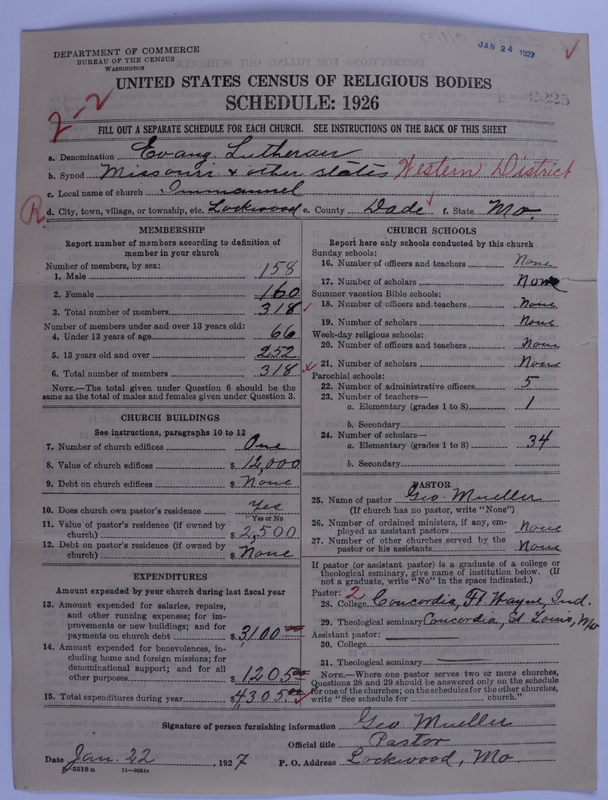 DEPARTMENT OF COMMERCE
BUREAU OF THE CENSUS
WASHINGTON
JAN 24 1927
UNITED STATES CENSUS OF RELIGIOUS BODIES
SCHEDULE: 1926
2225
2-2
FILL OUT A SEPARATE SCHEDULE FOR EACH CHURCH. SEE INSTRUCTIONS ON THE BACK OF THIS SHEET
a. Denomination Evang Lutheran
b. Synod Missouri & other states Western District
c. Local name of church Immanuel
R d. City, town, village, or township, etc. Lockwood e. County Dade f. State Mo.
MEMBERSHIP
Report number of members according to definition of
member in your church
Number of members, by sex:
1. Male 158
2. Female 160
3. Total number of members 318
Number of members under and over 13 years old:
4. Under 13 years of age 66
5. 13 years old and over 252
6. Total number of members 318
NOTE.—The total given under Question 6 should be the
same as the total of males and females given under Question 3.
CHURCH BUILDINGS
See instructions, paragraphs 10 to 12
7. Number of church edifices One
8. Value of church edifices $ 12,000
9. Debt on church edifices $ None
10. Does church own pastor's residence yes
Yes or No
11. Value of pastor's residence (if owned by
church) $ 2,500
12. Debt on pastor's residence (if owned by
church) $ None
EXPENDITURES
Amount expended by your church during last fiscal year
13. Amount expended for salaries, repairs,
and other running expenses; for im-
provements or new buildings; and for
payments on church debt $ 3,100 00
14. Amount expended for benevolences, in-
cluding home and foreign missions; for
denominational support; and for all
other purposes $ 1205 00
15. Total expenditures during year $ 4,305.00
CHURCH SCHOOLS
Report here only schools conducted by this church
Sunday schools:
16. Number of officers and teachers None
17. Number of scholars None
Summer vacation Bible schools:
18. Number of officers and teachers None
19. Number of scholars None
Week-day religious schools:
20. Number of officers and teachers None
21. Number of scholars None
Parochial schools:
22. Number of administrative officers 5
23. Number of teachers—
a. Elementary (grades 1 to 8) 1
b. Secondary
24. Number of scholars—
a. Elementary (grades 1 to 8) 34
b. Secondary
PASTOR
25. Name of pastor Geo. Mueller
(If church has no pastor, write "None")
26. Number of ordained ministers, if any, em-
ployed as assistant pastors None
27. Number of other churches served by the
pastor or his assistants None
If pastor (or assistant pastor) is a graduate of a college or
theological seminary, give name of institution below. (If
not a graduate, write "No" in the space indicated.)
Pastor: 2
28. College Concordia, Ft Wayne, Ind.
29. Theological seminary Concordia, St Louis, Mo
Assistant pastor:
30. College
31. Theological seminary
NOTE.—Where one pastor serves two or more churches,
Questions 28 and 29 should be answered only on the schedule
for one of the churches; on the schedules for the other churches,
write "See schedule for church."
Signature of person furnishing information Geo Mueller
Official title Pastor
Date Jan. 22, 1927 P. O. Address Lockwood, Mo.